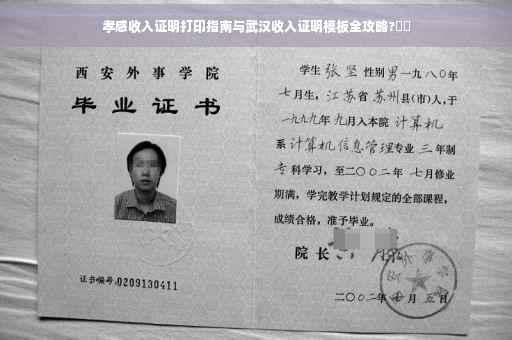 孝感收入证明打印指南与武汉收入证明模板全攻略?
西安外事学院
毕业证书
证书编号:0209130411
学生 张坚 性别 男 一九八0年
七月生, 江苏省 苏州县(市)人, 于
一九九九年 九月入本院 计算机
系 计算机信息管理专业 三 年制
专 科学习, 至二〇〇二年 七月修业
期满, 学完教学计划规定的全部课程,
成绩合格, 准予毕业。
院长
二〇〇二年 月 五日